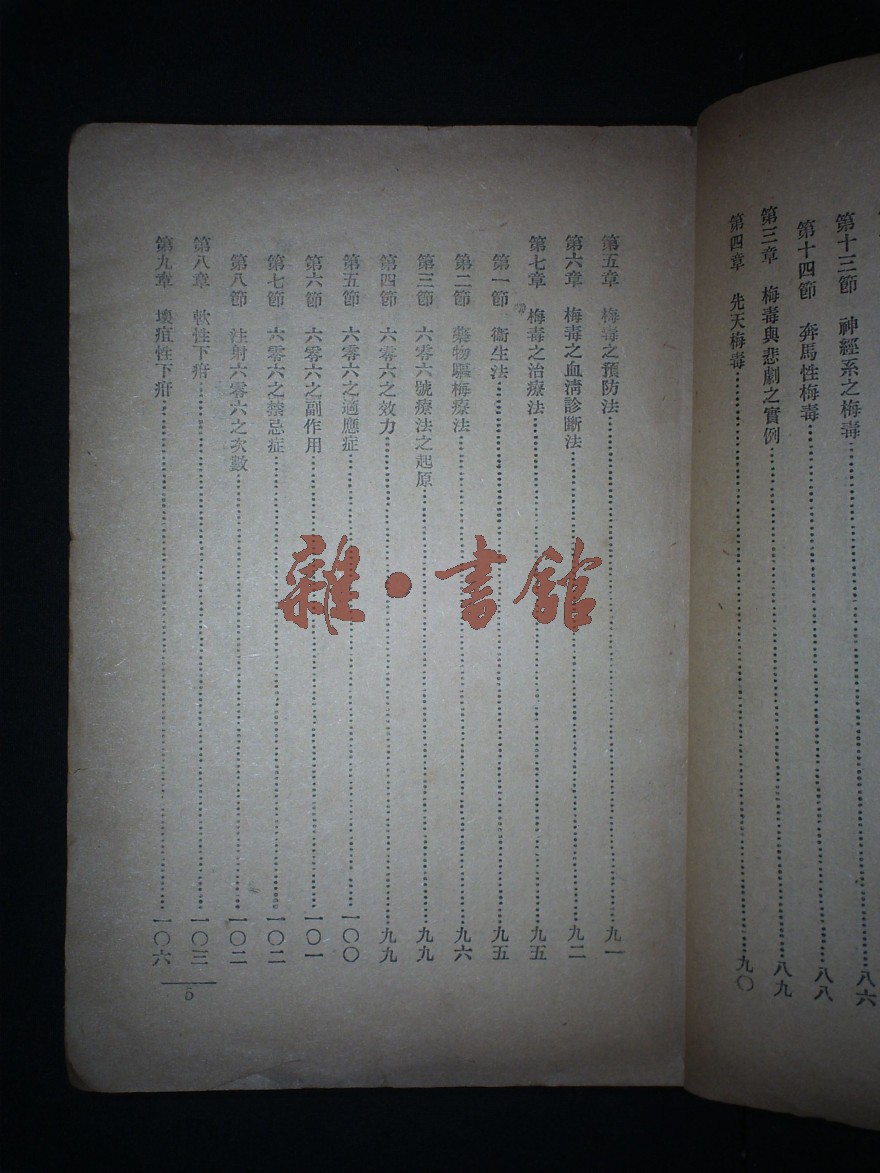 第十三節　神經系之梅毒……八六
第十四節　奔馬性梅毒……八八
第三章　梅毒與悲劇之實例……八九
第四章　先天梅毒……九〇
第五章　梅毒之預防法……九一
第六章　梅毒之血淸診斷法……九二
第七章　梅毒之治療法……九五
第一節　衞生法……九五
第二節　藥物驅梅療法……九六
第三節　六零六號療法之起原……九九
第四節　六零六之效力……九九
第五節　六零六之適應症……一〇〇
第六節　六零六之副作用……一〇一
第七節　六零六之禁忌症……一〇二
第八節　注射六零六之次數……一〇二
第八章　軟性下疳……一〇三
第九章　壞疽性下疳……一〇六
5
雜·書館